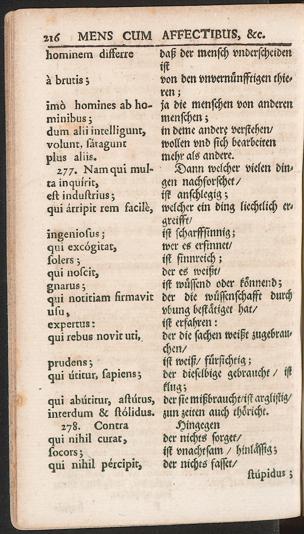 216 MENS CUM AFFECTIBUS, &c.
hominem differre daß der mensch vnderscheiden
ist
à brutis; von den unvernünfftigen thie-
ren;
imò homines ab ho- ja die menschen von anderen
minibus; menschen;
dum alii intelligunt, in deme andere verstehen/
volunt, satagunt wollen vnd sich bearbeiten
plus aliis. mehr als andere.
277. Nam qui mul- Dann welcher vielen din-
ta inquirit, gen nachforschet/
est industrius; ist anschlegig;
qui árripit rem facilè, welcher ein ding liechtlich er-
greifft/
ingeniosus; ist scharffsinnig;
qui excógitat, wer es erfinnet/
solers; ist sinnreich;
qui noscit, der es weißt/
gnarus; ist wüssend oder könnend;
qui notitiam firmavit der die wüssenschafft durch
usu, vbung bestätiget hat/
expertus: ist erfahren:
qui rebus novit uti, der die sachen weißt zugebrau-
chen/
prudens; ist weiß/ fürsichtig;
qui útitur, sapiens; der dieselbige gebraucht/ ist
klug;
qui abútitur, astútus, der sie mißbraucht/ ist arglistig/
interdum & stólidus. zun zeiten auch thöricht.
278. Contra Hingegen
qui nihil curat, der nichts sorget/
socors; ist vnachtsam/ hinlässig;
qui nihil pércipit, der nichts fasset/
stúpidus;